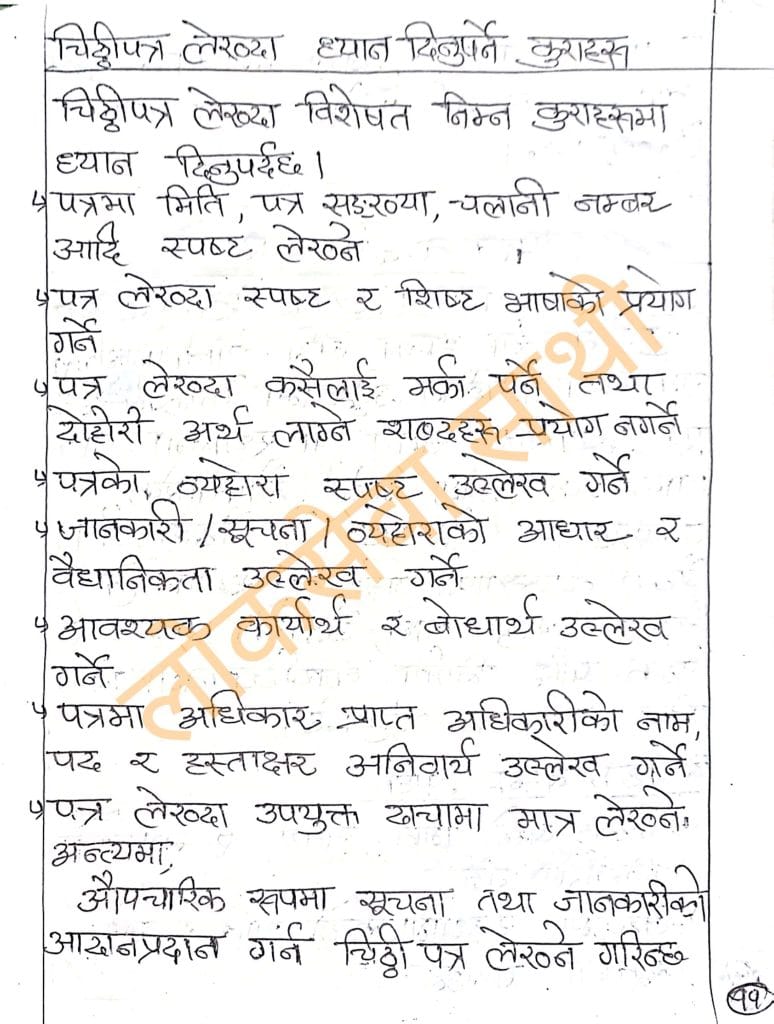 चिठ्ठीपत्र लेख्दा ध्यान दिनुपर्ने कुराहरू
चिठ्ठीपत्र लेख्दा विशेषत निम्न कुराहरूमा
ध्यान दिनुपर्दछ।
पत्रमा मिति, पत्र सङ्ख्या, चलानी नम्बर
आदि स्पष्ट लेख्ने
पत्र लेख्दा स्पष्ट र शिष्ट भाषाको प्रयोग
गर्ने
पत्र लेख्दा कसैलाई मर्का पर्ने तथा
दोहोरी अर्थ लाग्ने शब्दहरू प्रयोग नगर्ने
पत्रको व्यहोरा स्पष्ट उल्लेख गर्ने
जानकारी/सूचना/व्येहोराको आधार र
वैधानिकता उल्लेख गर्ने
आवश्यक कार्यार्थ र बोधार्थ उल्लेख
गर्ने
पत्रमा अधिकार प्राप्त अधिकारीको नाम,
पद र हस्ताक्षर अनिवार्य उल्लेख गर्ने
पत्र लेख्दा उपयुक्त ढाचामा मात्र लेख्ने
अन्त्यमा,
औपचारिक रूपमा सूचना तथा जानकारीको
आदानप्रदान गर्न चिठ्ठी पत्र लेख्ने गरिन्छ
११
लोकसेवा साथी